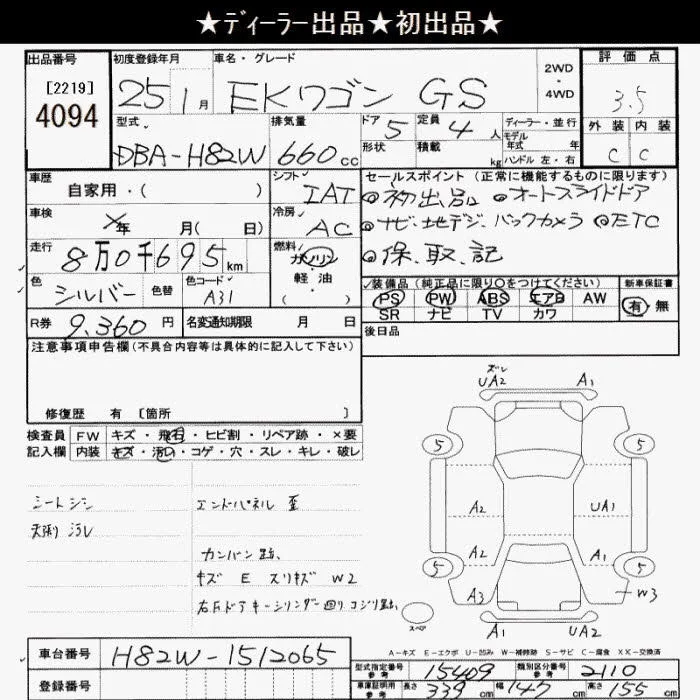 ★ディーラー出品★初出品★
出品番号 初度登録年月 車名・グレード 2WD・4WD 評価点
[2219]
4094 25 1月 EKワゴン GS 3.5
型式 排気量 ドア 定員 ディーラー・並行 外装 内装
DBA-H82W 660cc 5 4人 モデル年式 年 C C
形状 積載 kg ハンドル 左・右
車歴 シフト セールスポイント(正常に機能するものに限ります)
自家用・( ) IAT ◎初出品 ◎オートスライドドア
車検 冷房 ◎ナビ、地デジ、バックカメラ ◎ETC
年 月( 日) AC ◎保、取、記
走行 燃料
8万0千695km ガソリン・軽油( )
色 シルバー 色替 色コード A31
装備品(純正品に限り○をつけてください) 新車保証書
PS PW ABS エアB AW 有 無
SR ナビ TV カワ
R券 9,360円 名変通知期限 月 日 後日品
注意事項申告欄(不具合内容等は具体的に記入して下さい)
修復歴 有 [箇所 ]
検査員 FW キズ・飛石・ヒビ割・リペア跡・×要
記入欄 内装 キズ・汚れ・コゲ・穴・スレ・キレ・破レ
シートシミ エンドパネル 歪
天張 汚レ
カンバン跡、
キズ E スリキズ W2
右Fドアキーシリンダー回りコジリ跡
ズレ
UA2 A1
5 5
A2 UA1
A2 A1
5 5
A3 W3
スペア A1 UA2
A-キズ E-エクボ U-凹み W-補修跡 S-サビ C-腐食 XX-交換済
車台番号 H82W-1512065
登録番号
型式指定番号 参考 15409 類別区分番号 参考 2110
車庫証明用 参考 長さ 339cm 幅 147cm 高さ 155cm